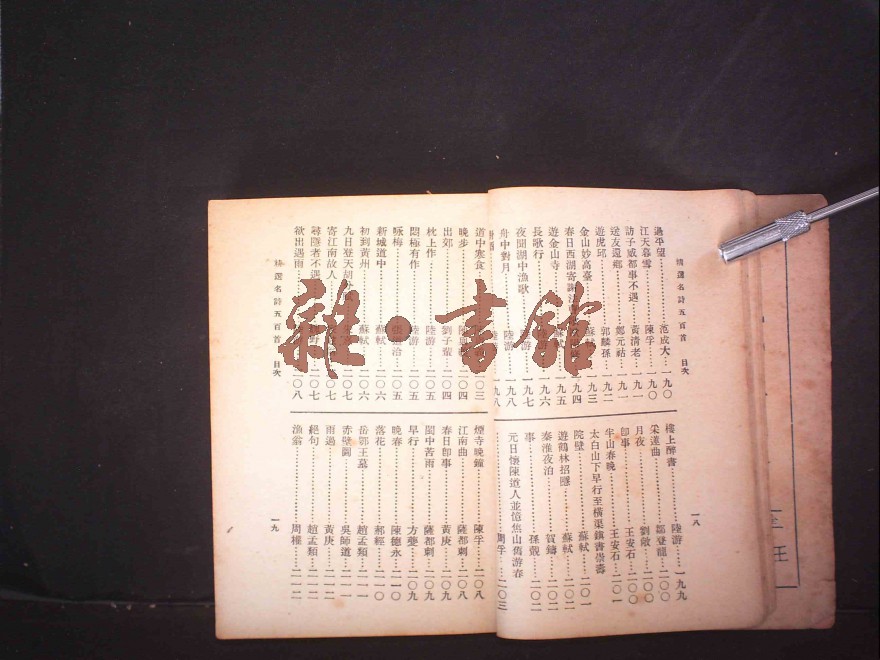 精選名詩五百首　目次
過平望……范成大…一九〇
江天暮雪……陳孚…一九〇
訪子威都事不遇……黃清老…一九一
送友還鄉……鄭元祐…一九一
遊虎邱……郭麟孫…一九二
金山妙高臺……蘇軾…一九三
春日西湖寄謝法……一九四
遊金山寺……一九五
長歌行……一九六
夜聞湖中漁歌……一九七
舟中對月……陸游…一九八
一九八
樓上醉書……陸游…一九九
采蓮曲……鄒登龍…二〇〇
月夜……劉敞…二〇〇
即事……王安石…二〇一
半山春晚……王安石…二〇一
太白山下早行至橫渠鎮書崇壽
院壁……蘇軾…二〇一
遊鶴林招隱……蘇軾…二〇二
秦淮夜泊……賀鑄…二〇二
事……孫覿…二〇二
元日懷陳道人並憶焦山舊游春
周孚…二〇三
一八
道中寒食……二〇三
晚步……二〇四
出郊……劉子翬…二〇四
枕上作……陸游…二〇五
悶極有作……陸游…二〇五
咏梅……二〇五
新城道中……蘇軾…二〇六
初到黃州……蘇軾…二〇六
九日登天湖……二〇七
寄江南故人……二〇七
尋隱者不遇……二〇七
欲出遇雨……二〇八
煙寺晚鐘……陳孚…二〇八
江南曲……薩都剌…二〇八
春日即事……黃庚…二〇九
閩中苦雨……薩都剌…二〇九
早行……方夔…二〇九
晚春……陳德永…二一〇
落花……郝經…二一〇
岳鄂王墓……趙孟頫…二一一
赤壁圖……吳師道…二一一
雨過……黃庚…二一一
絕句……趙孟頫…二一二
漁翁……周權…二一二
一九
雜·書館